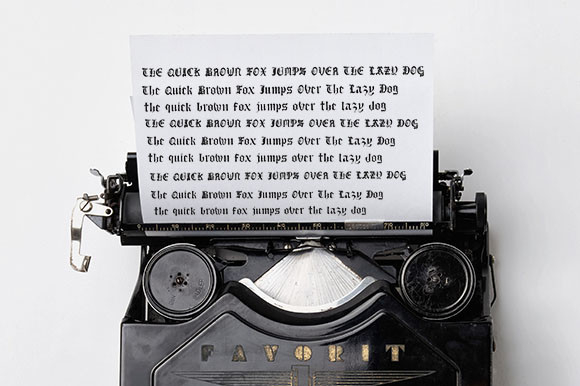 THE QUICK BROWN FOX JUMPS OVER THE LAZY DOG
The Quick Brown Fox Jumps Over The Lazy Dog
the quick brown fox jumps over the lazy dog
THE QUICK BROWN FOX JUMPS OVER THE LAZY DOG
The Quick Brown Fox Jumps Over The Lazy Dog
the quick brown fox jumps over the lazy dog
THE QUICK BROWN FOX JUMPS OVER THE LAZY DOG
The Quick Brown Fox Jumps Over The Lazy Dog
the quick brown fox jumps over the lazy dog
FAVORIT